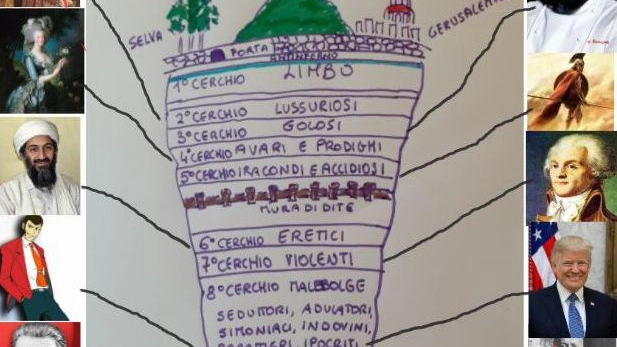 SELVA
GERUSALEMME
PORTA
INFERNO
1° CERCHIO LIMBO
2° CERCHIO LUSSURIOSI
3° CERCHIO GOLOSI
4° CERCHIO AVARI E PRODIGHI
5° CERCHIO IRACONDI E ACCIDIOSI
MURA DI DITE
6° CERCHIO ERETICI
7° CERCHIO VIOLENTI
8° CERCHIO MALEBOLGE
SEDUTTORI, ADULATORI,
SIMONIACI, INDOVINI,
BARATTIERI, IPOCRITI